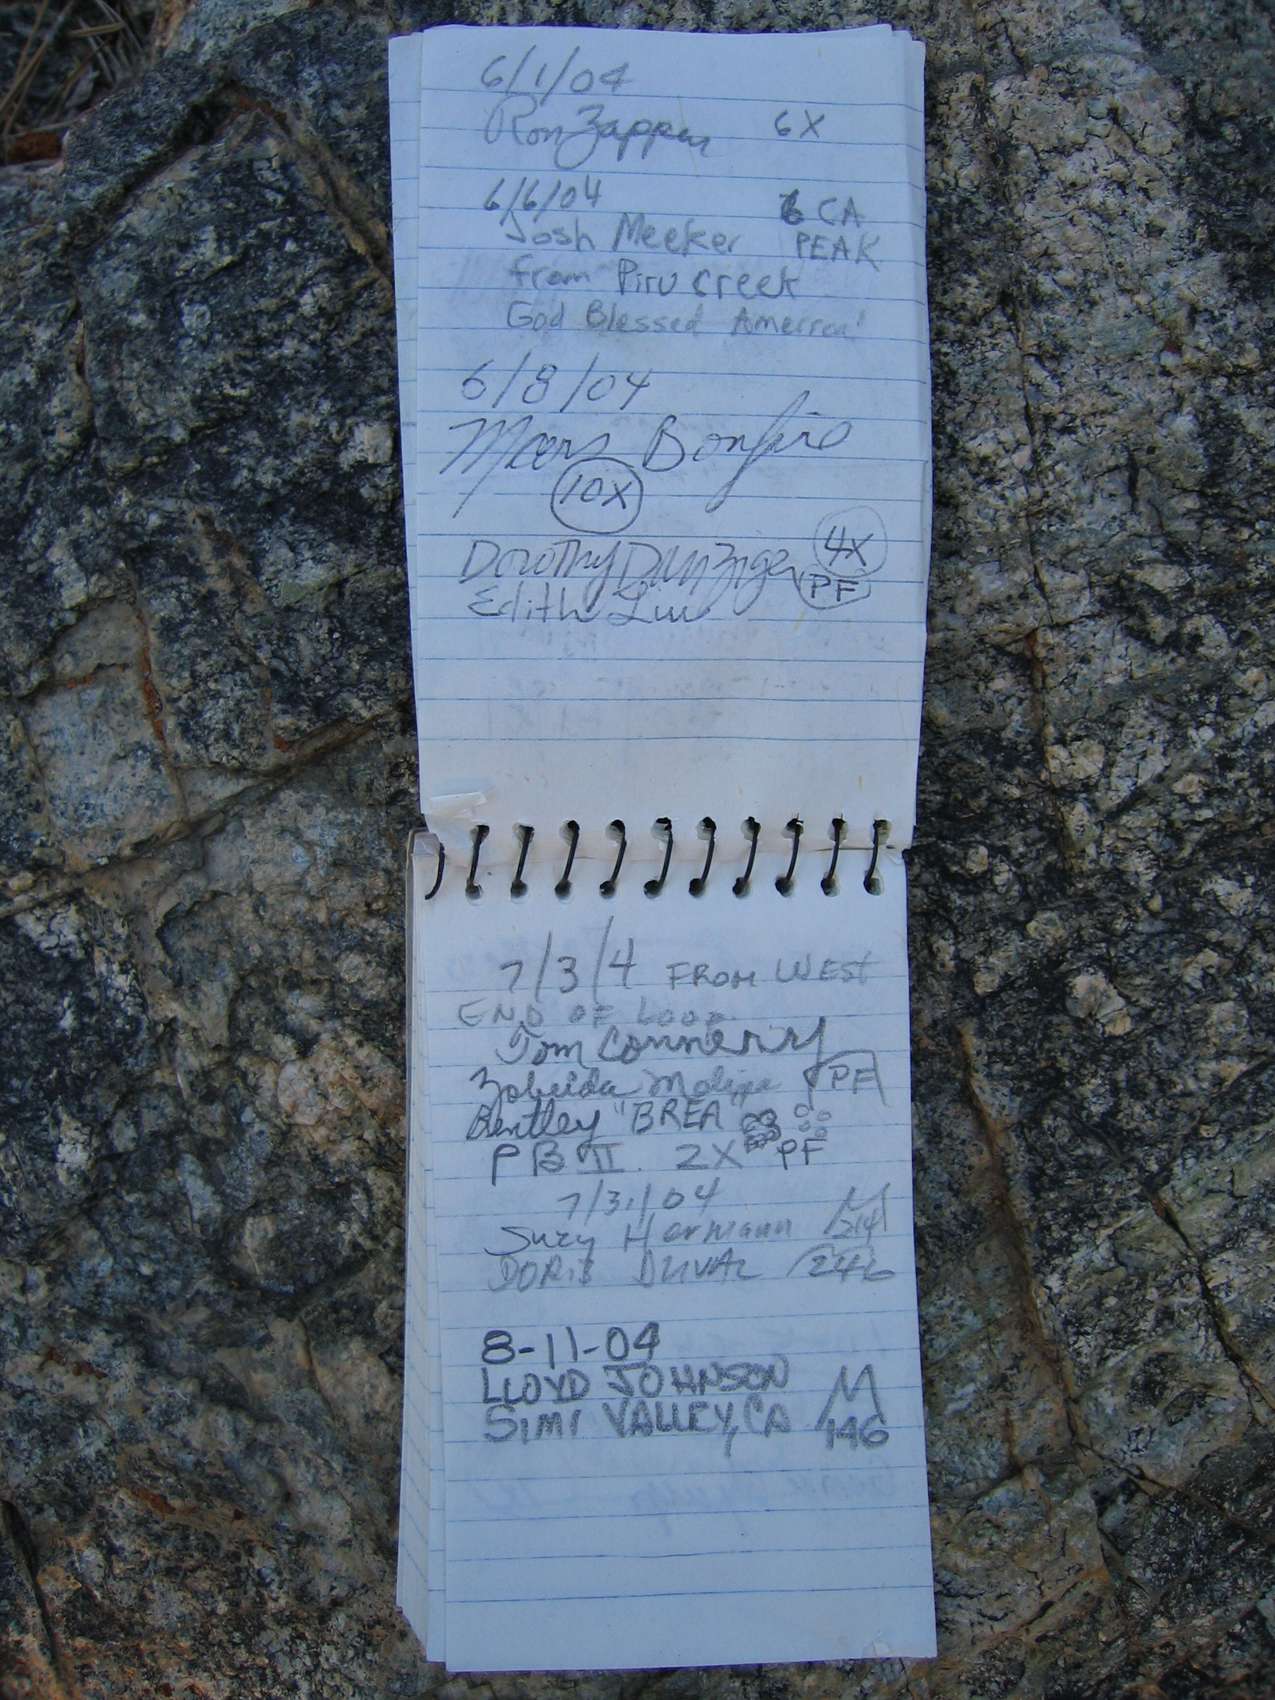 6/1/04
Ron Zappen 6X
6/6/04 6 CA
Josh Meeker PEAK
from Piru creek
God Blessed America!
6/8/04
Mars Bonfire
10X
Dorothy Danziger 4X
Edith Liu PF
7/3/4 FROM WEST
END OF LOOP
Tom Connery
Zobeida Molina PF
Bentley "BREA
PB II 2X PF
7/31/04
Suzy Hermann M
DORIS DUVAL 246
8-11-04
LLOYD JOHNSON M
SIMI VALLEY, CA 146